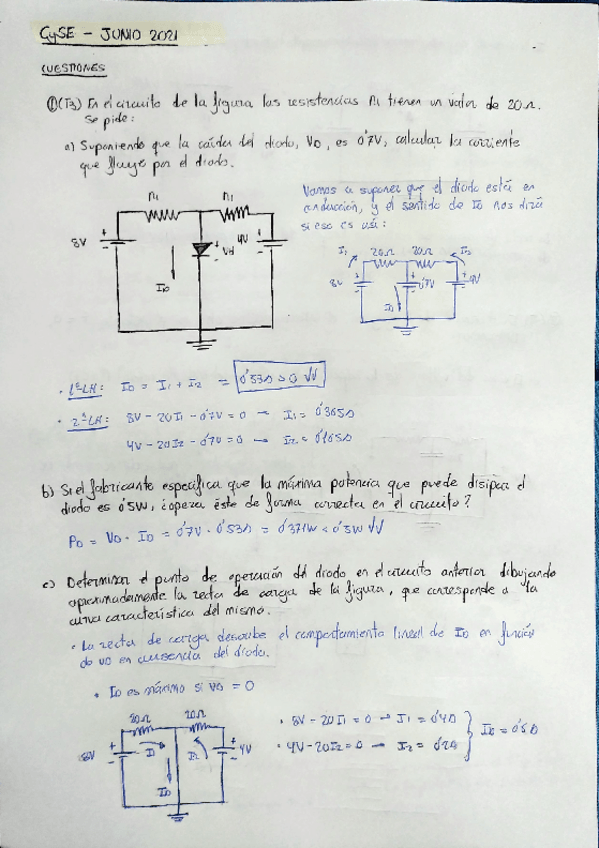 CySE - JUNIO 2021
CUESTIONES
①(T3) En el circuito de la figura las resistencias R1 tienen un valor de 20Ω.
Se pide:
a) Suponiendo que la caída del diodo, VD, es 0'7V, calcular la corriente
que fluye por el diodo.
Vamos a suponer que el diodo está en
conducción, y el sentido de ID nos dirá
si eso es así:
R1 R1
8V + - + Vd - 4V + -
ID
I1 20Ω 20Ω I2
8V + - + 0'7V - + 4V -
ID
· 1ª LK: ID = I1 + I2 = 0'53A > 0 √√
· 2ª LK: 8V - 20I1 - 0'7V = 0 → I1 = 0'365A
4V - 20I2 - 0'7V = 0 → I2 = 0'165A
b) Si el fabricante especifica que la máxima potencia que puede disipar el
diodo es 0'5W, ¿opera éste de forma correcta en el circuito?
PD = VD · ID = 0'7V · 0'53A = 0'371W < 0'5W √√
c) Determinar el punto de operación del diodo en el circuito anterior dibujando
aproximadamente la recta de carga de la figura, que corresponde a la
curva característica del mismo.
· La recta de carga describe el comportamiento lineal de ID en función
de VD en ausencia del diodo.
· ID es máximo si VD = 0
20Ω 20Ω
8V + - I1 I2 + - 4V
ID
· 8V - 20I1 = 0 → I1 = 0'4A
· 4V - 20I2 = 0 → I2 = 0'2A
ID = 0'6A